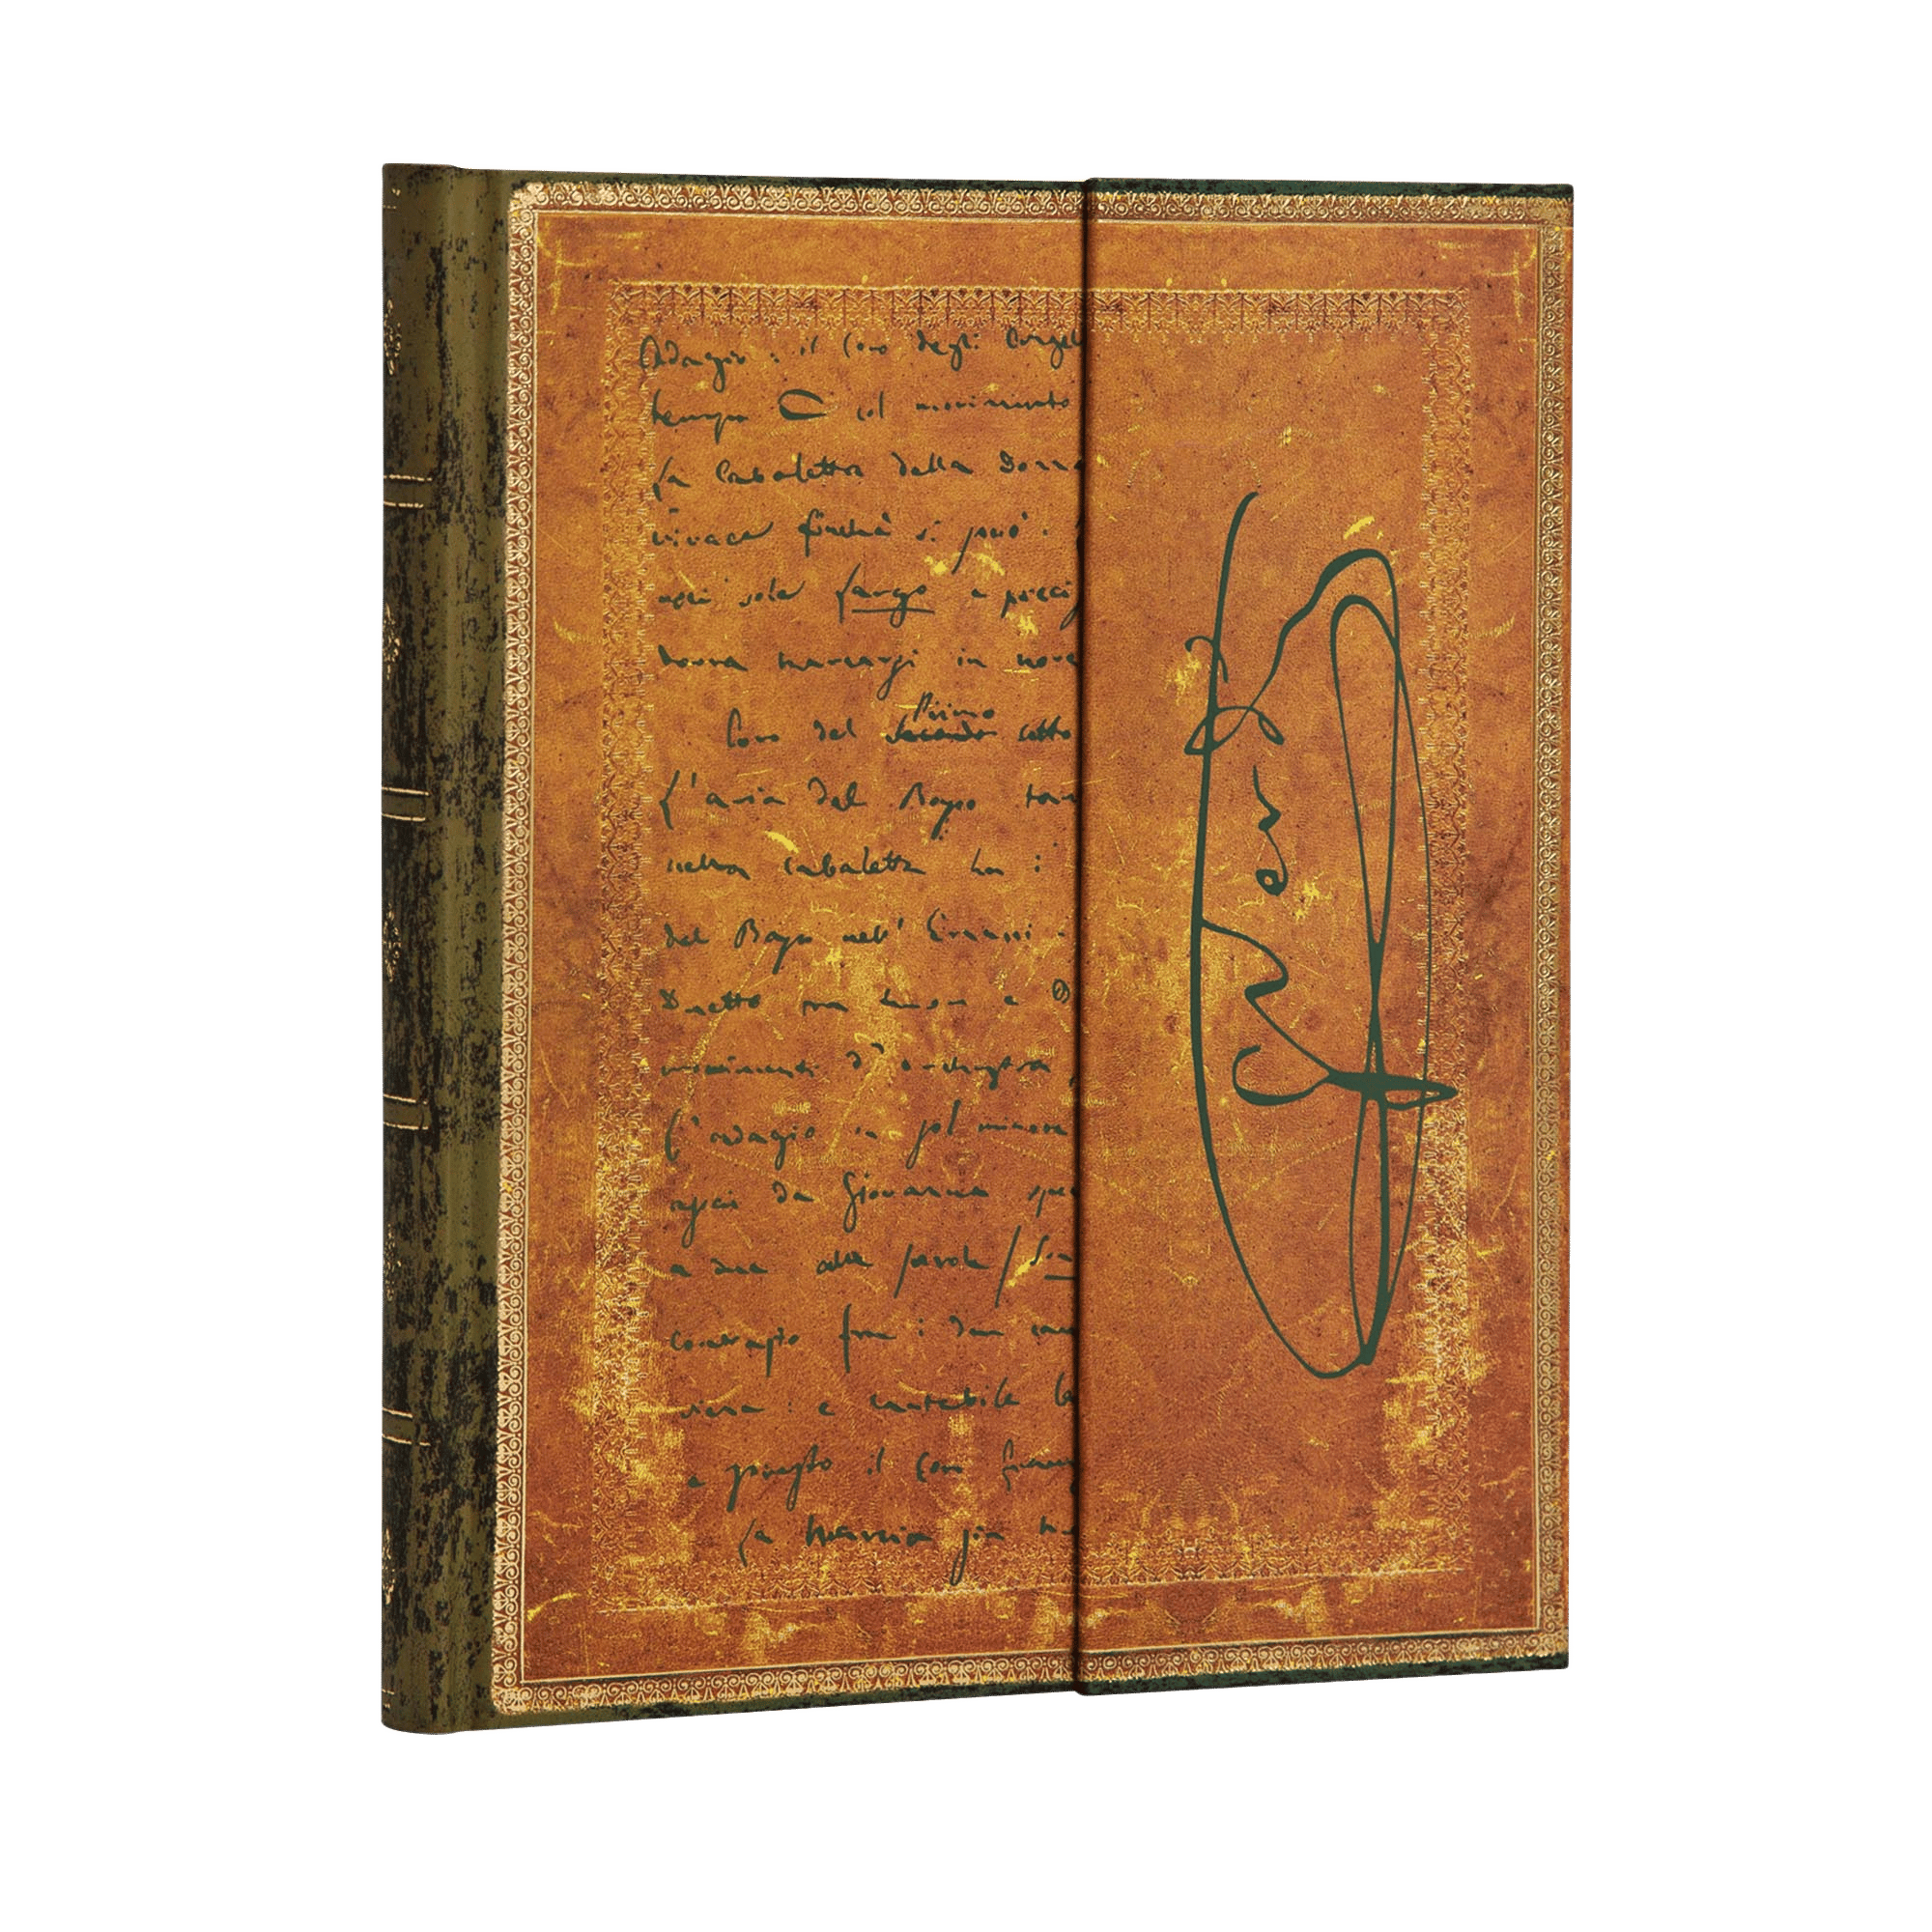 Adagio: il Coro degli Angel
tempo C col movimento
la Cabaletta della Donna
vivace finchè si può.
agli solo largo e preci
dovrà marcarsi in nove
Primo
Coro del Secondo atto
l'aria del Basso
nella cabaletta ha i
del Basso nell' Ernani -
Duetto tra tenor e D
movimenti d'orchestra,
l'adagio in sol minore
da Giovanna spe
a due alla parola
contrasto fra i due can
viva: e cantabile le
e presto il Coro
la marcia
G Verdi